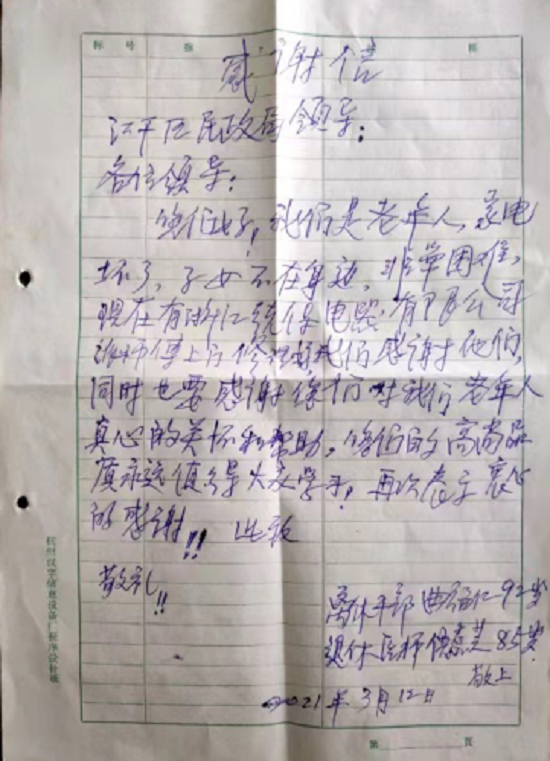 标 号 张 第
感谢信
江干区民政局领导:
各位领导:
您们好,我们是老年人,家电
坏了,子女不在身边,非常困难,
现在有浙江统保电器有限公司
师傅上门修理好我们感谢他们,
同时也要感谢你们对我们老年人
真心的关怀和帮助,您们的高尚品
质永远值得大家学习,再次表示衷心
的感谢!! 此致
敬礼!!
离休干部 曲 仁92岁
退休医师 85岁
敬上
2021年3月12日
第 页